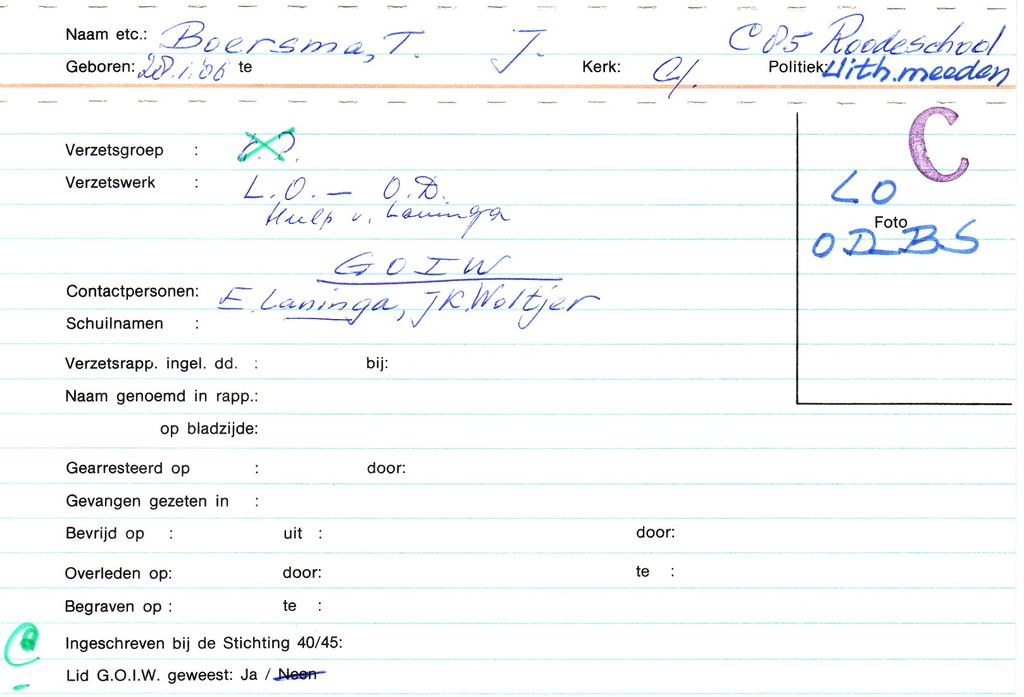 Naam etc.: Boersma, T. J. C 85 Roodeschool
Geboren: 28.1.'06 te Kerk: Politiek: Uith.meeden
C
Verzetsgroep :
Verzetswerk : L.O. - O.D. LO
Hulp v. Laninga Foto
OD BS
GOIW
Contactpersonen: E. Laninga, JK. Woltjer
Schuilnamen :
Verzetsrapp. ingel. dd. : bij:
Naam genoemd in rapp.:
op bladzijde:
Gearresteerd op : door:
Gevangen gezeten in :
Bevrijd op : uit : door:
Overleden op: door: te :
Begraven op : te :
Ingeschreven bij de Stichting 40/45:
Lid G.O.I.W. geweest: Ja / Neen